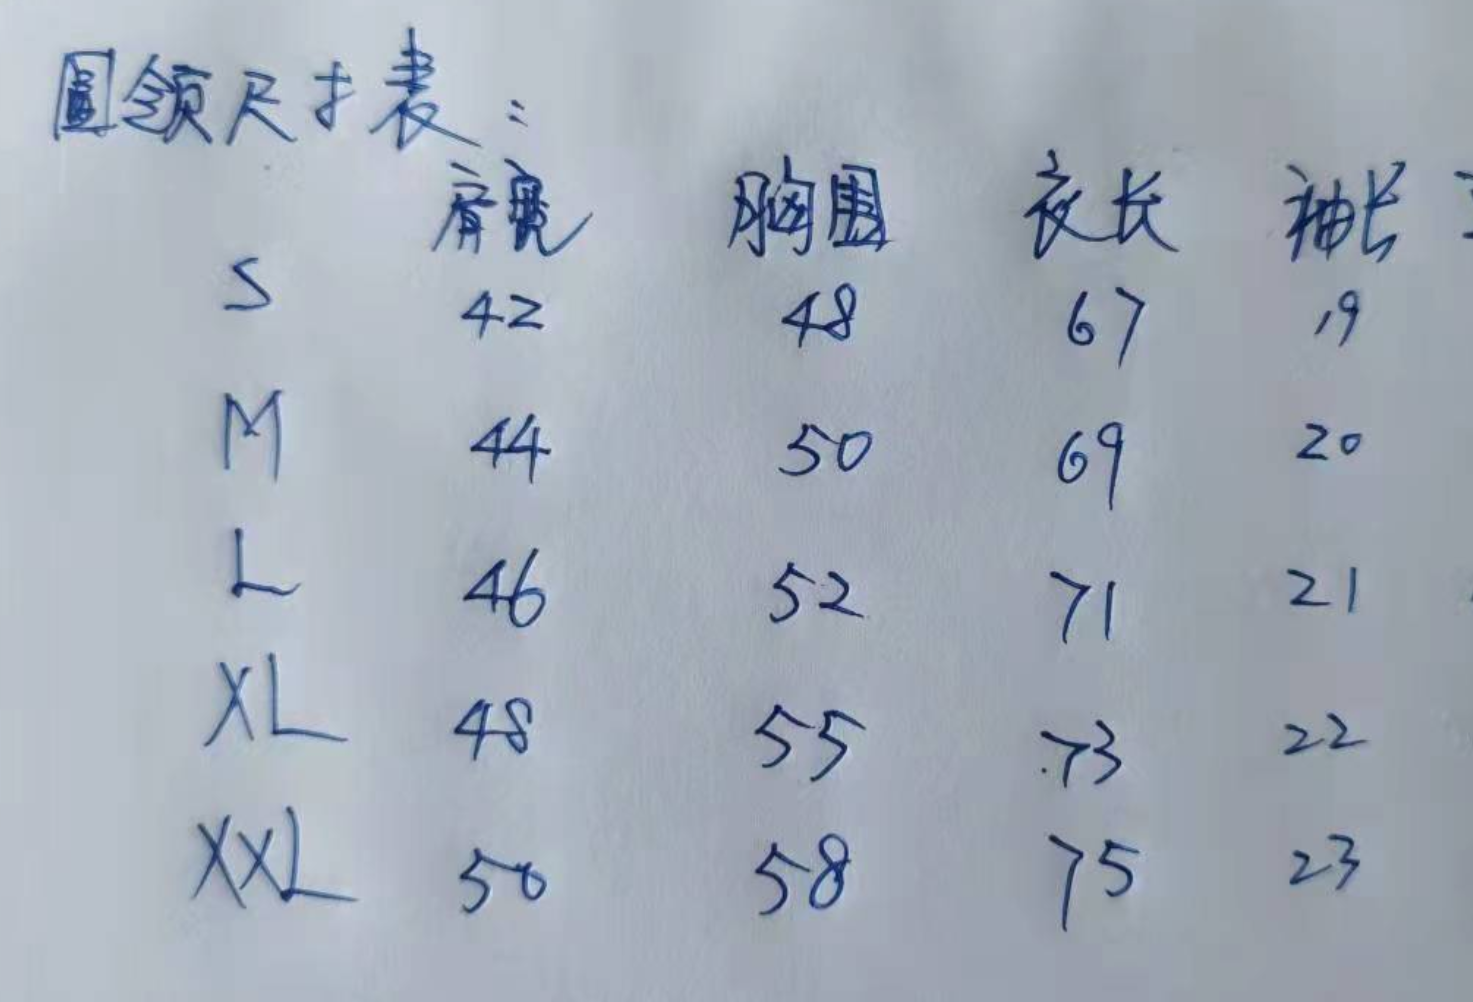 圆领尺寸表:
肩宽 胸围 衣长 袖长
S 42 48 67 19
M 44 50 69 20
L 46 52 71 21
XL 48 55 73 22
XXL 50 58 75 23